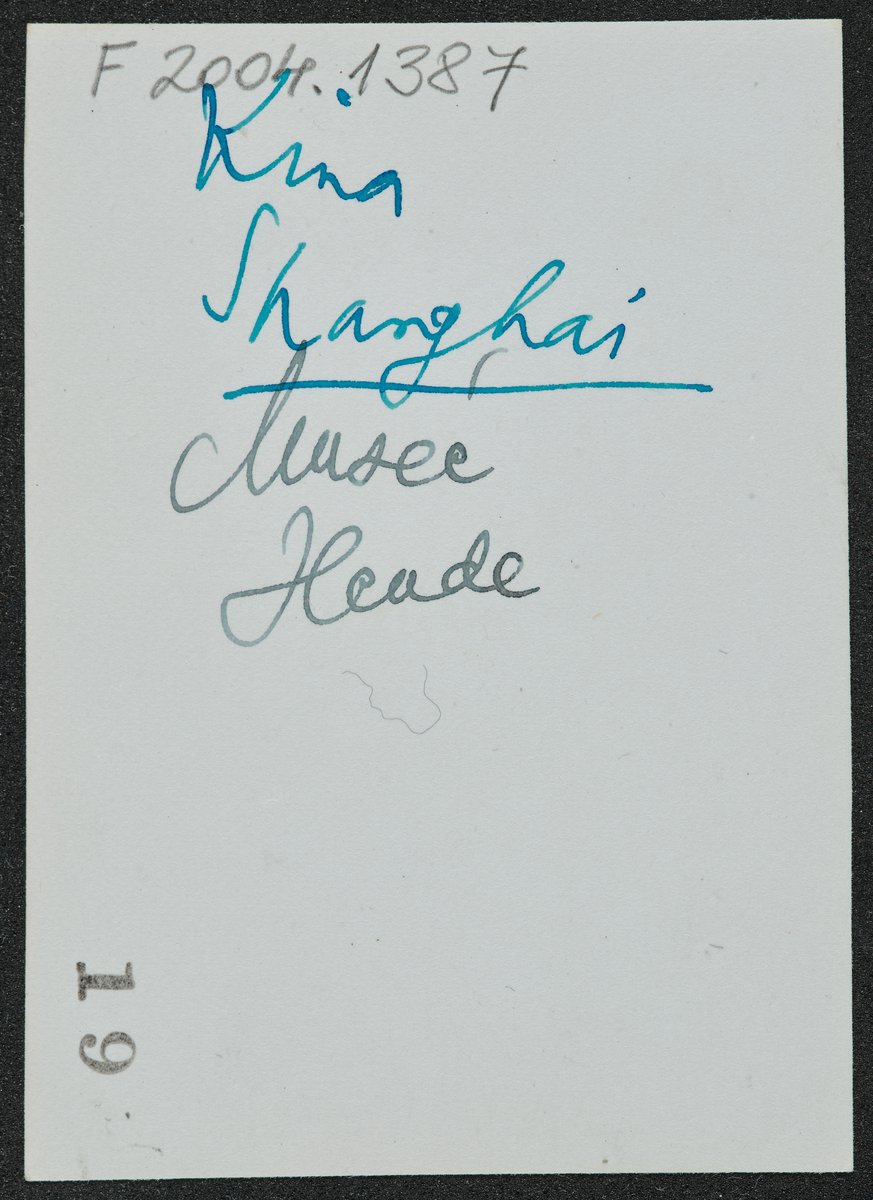 F 2004.1387
Kina
Shanghai
Musée
Heude
19